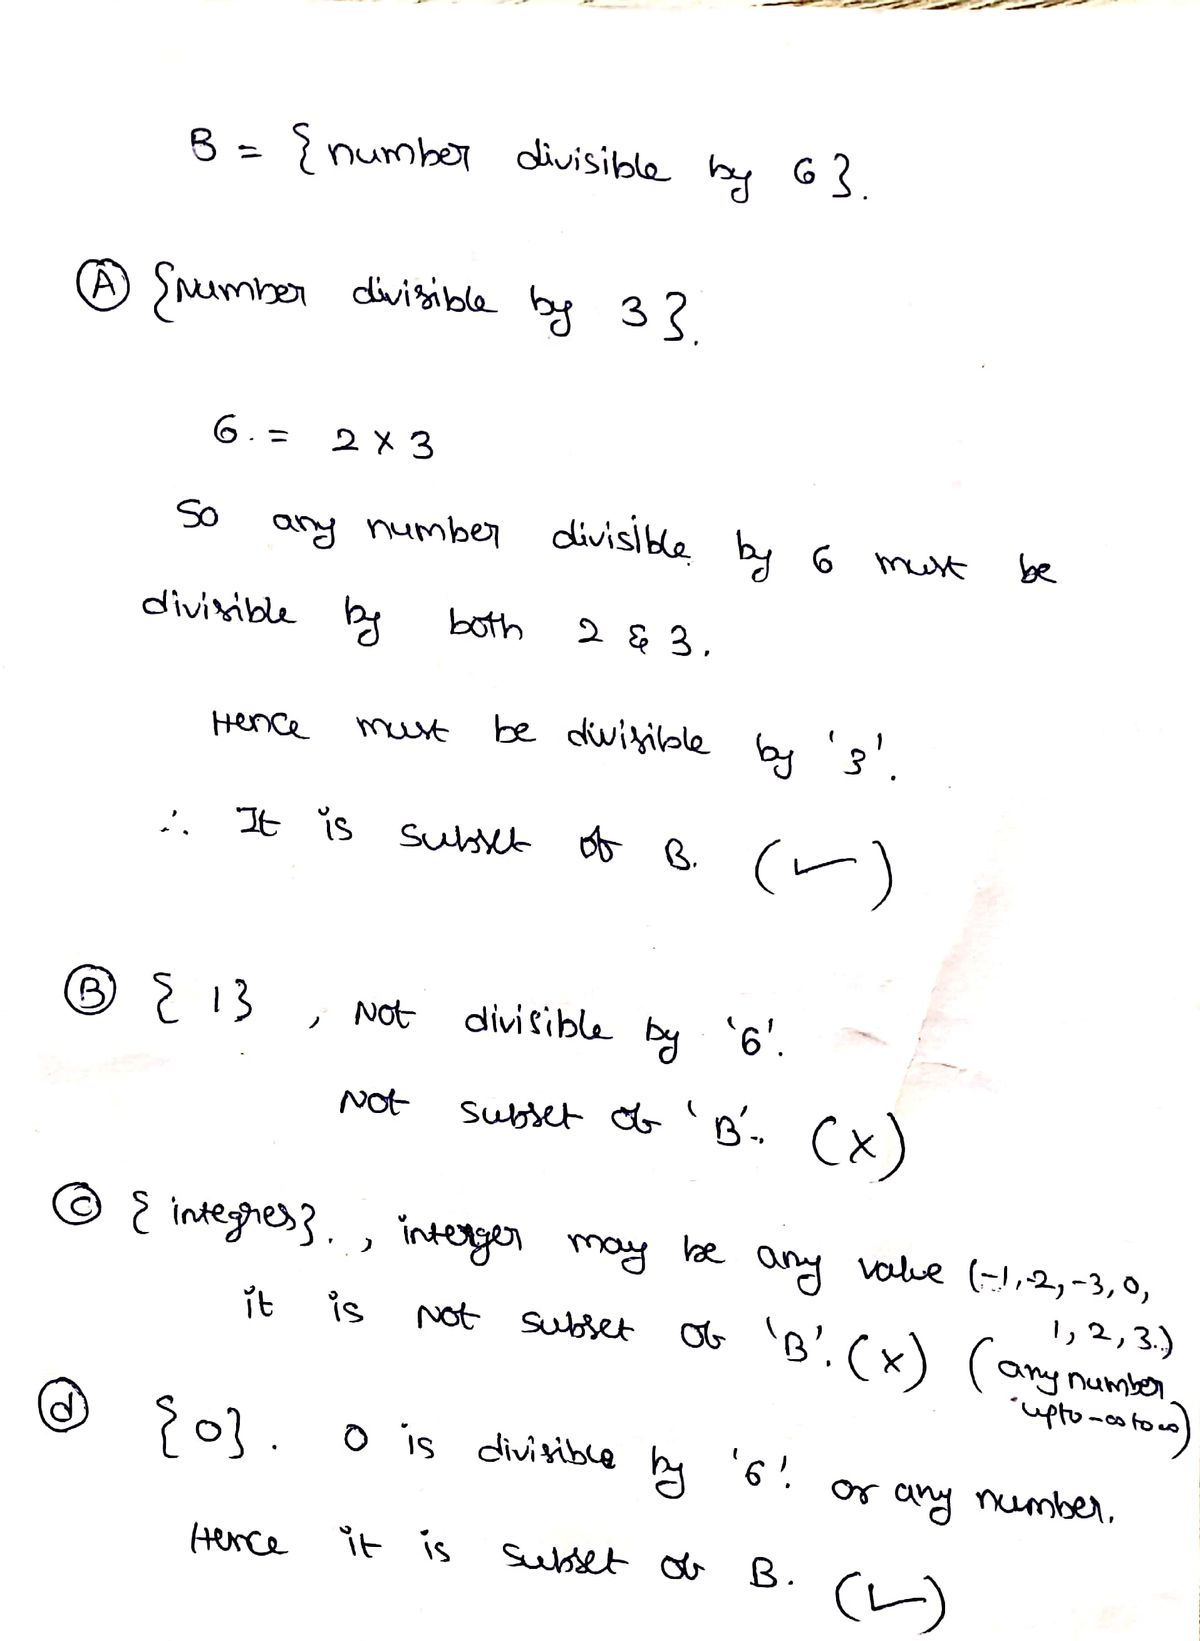 B = { number divisible by 6 }.
(A) { Number divisible by 3 }.
6. = 2 × 3
So any number divisible by 6 must be
divisible by both 2 & 3.
Hence must be divisible by '3'.
∴ It is subset of B. (✓)
(B) { 1 } , Not divisible by '6'.
Not subset of 'B'. (×)
(C) { integres }. , interger may be any value (-1, -2, -3, 0,
1, 2, 3..)
it is Not subset of 'B'. (×) (any number
upto -∞ to ∞)
(d) { 0 }. 0 is divisible by '6' or any number.
Hence it is subset of B. (✓)